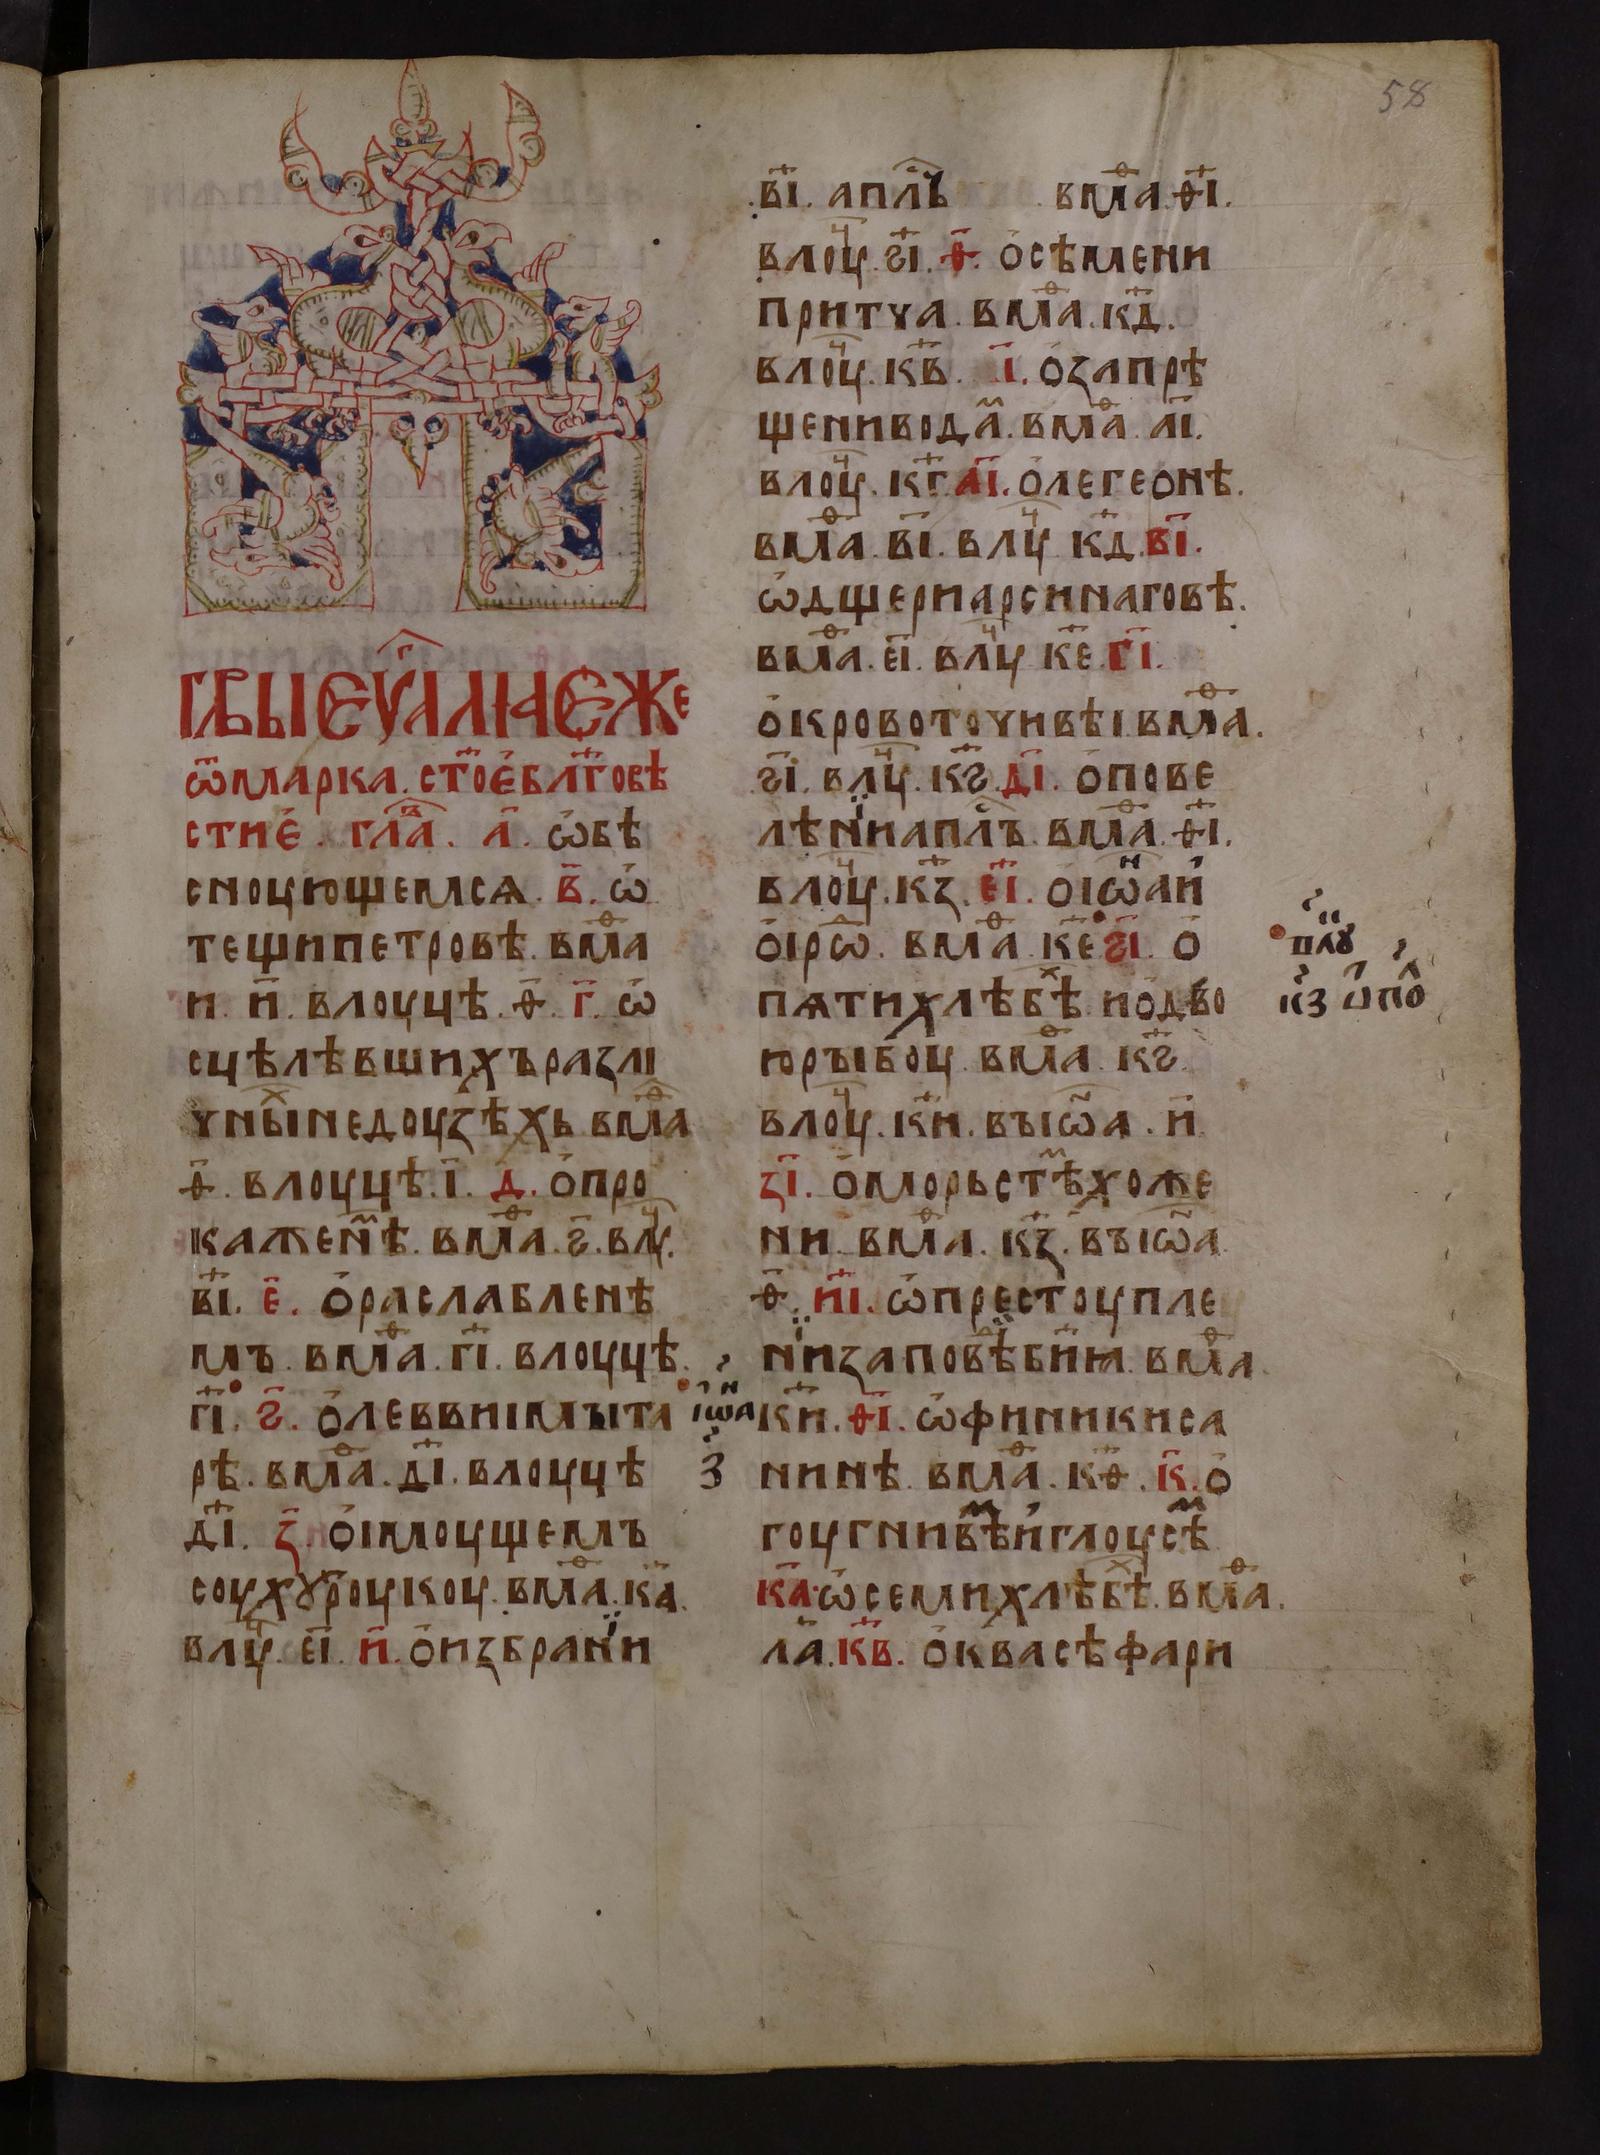 58
главы еуⷢ҇алиа еже
ѿ марка. ст҃ое бл҃гове
стие. глⷡ҇а. а҃. ѡ бѣ
сноующемсѧ. в҃. ѡ
тещи петровѣ. в маⷴ҇
и. и҃. в лоуцѣ. ѳ҃. г҃. ѡ
сцѣлѣвшихъ разлі
чныⷯ недоуꙁѣхь. в маⷴ҇
ѳ҃. в лоуцѣ. і҃. д҃. о про
каженⷨѣ. в маⷴ҇. ѕ҃. в лꙋⷱ҇.
в҃і. е҃. о раслабленѣ
мъ. в маⷴ҇. г҃і. в лоуцѣ.
г҃і. ѕ҃. о леввиі мыта
рѣ. в маⷴ҇. д҃і. в лоуцѣ
д҃і. ꙁ҃. о імоущемъ
соухꙋ роукоу. в маⷴ҇. к҃а.
в лꙋⷱ҇. е҃і. и҃. о иꙁбрании
в҃і. апⷭ҇лъ в маⷴ҇. ѳ҃і.
в лоуⷱ҇. ѕ҃і. ѳ҃. о сѣмени
притча. в маⷴ҇. к҃д.
в лоуⷱ҇. к҃в. і҃. о ꙁапрѣ
щени водаⷨ. в маⷴ҇. а҃і.
в лоуⷱ҇. к҃г. а҃і. о легеонѣ.
в маⷴ҇. в҃і. в лꙋⷱ҇ к҃д. в҃і.
ѡ дщери арсинаговѣ.
в маⷴ҇. е҃і. в лꙋⷱ҇ к҃е. г҃і.
о кровоточивѣі в маⷴ҇.
ѕ҃і. в лꙋⷱ҇. к҃ѕ. д҃і. о пове
лѣнии апⷭ҇лъ. в маⷴ҇. ѳ҃і.
в лоуⷱ҇. к҃ꙁ. е҃і. о іѡⷩ҇а и
о ірѡ. в маⷴ҇. к҃е ѕ҃і. о
пѧти хлѣбⷯѣ. и о дво
ю рыбоу. в маⷴ҇. к҃ѕ.
в лоуⷱ҇. к҃и. въ іѡ҃а. и҃.
ꙁ҃і. о морьстⷨѣ хоже
ни. в маⷴ҇. к҃ꙁ. въ іѡ҃а
ѳ҃. и҃і. ѡ престоупле
нии ꙁаповѣⷣ б҃ии. в маⷴ҇.
к҃и. ѳ҃і. ѡ финикиса
нинѣ. в маⷴ҇. к҃ѳ. к҃. о
гоугнивⷨѣ и глоусⷨѣ
к҃а. ѡ семи хлѣбⷯѣ. в маⷴ҇.
л҃а. к҃в. о квасѣ фари
іѡⷩа
з
плꙋ
кз